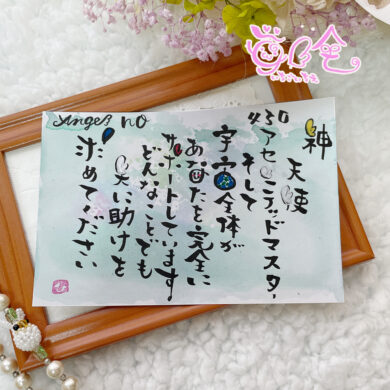 Angel no 430
神
天使
アセンデッドマスター
そして
宇宙全体が
あなたを完全に
サポートしています
どんなことでも
天に助けを
求めてください